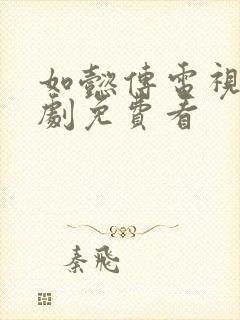 如懿傳電視
劇免費看
秦飛